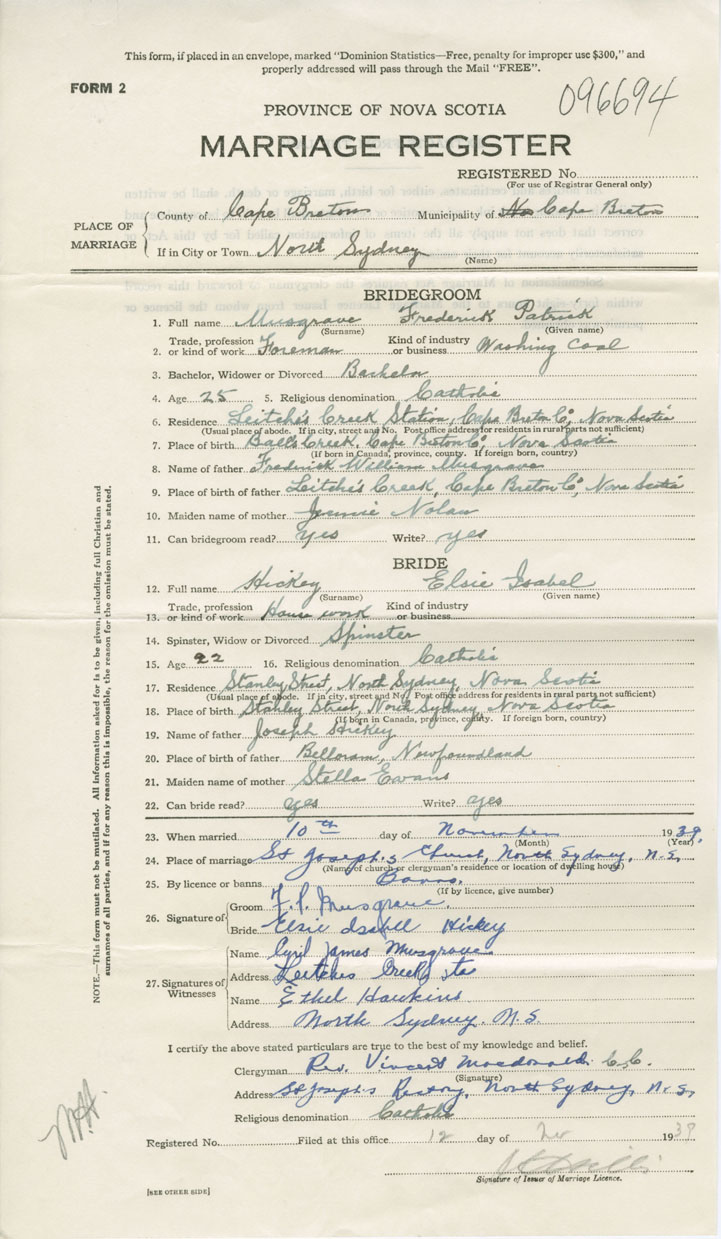 This form, if placed in an envelope, marked "Dominion Statistics—Free, penalty for improper use $300," and
properly addressed will pass through the Mail "FREE".
FORM 2
096694
PROVINCE OF NOVA SCOTIA
MARRIAGE REGISTER
REGISTERED No.
(For use of Registrar General only)
PLACE OF MARRIAGE
County of Cape Breton Municipality of Cape Breton
If in City or Town North Sydney
(Name)
BRIDEGROOM
1. Full name Musgrave Frederick Patrick
(Surname) (Given name)
2. Trade, profession or kind of work Foreman Kind of industry or business Washing Coal
3. Bachelor, Widower or Divorced Bachelor
4. Age 25 5. Religious denomination Catholic
6. Residence Leitche's Creek Station, Cape Breton Co, Nova Scotia
(Usual place of abode. If in city, street and No. Post office address for residents in rural parts not sufficient)
7. Place of birth Ball's Creek, Cape Breton Co, Nova Scotia
(If born in Canada, province, county. If foreign born, country)
8. Name of father Frederick William Musgrave
9. Place of birth of father Leitche's Creek, Cape Breton Co, Nova Scotia
10. Maiden name of mother Jennie Nolan
11. Can bridegroom read? yes Write? yes
BRIDE
12. Full name Hickey Elsie Isabel
(Surname) (Given name)
13. Trade, profession or kind of work House work Kind of industry or business
14. Spinster, Widow or Divorced Spinster
15. Age 22 16. Religious denomination Catholic
17. Residence Stanley Street, North Sydney, Nova Scotia
(Usual place of abode. If in city, street and No. Post office address for residents in rural parts not sufficient)
18. Place of birth Stanley Street, North Sydney, Nova Scotia
(If born in Canada, province, county. If foreign born, country)
19. Name of father Joseph Hickey
20. Place of birth of father Belloram, Newfoundland
21. Maiden name of mother Stella Evans
22. Can bride read? yes Write? yes
23. When married 10th day of November 1939
(Month) (Year)
24. Place of marriage St Joseph's Church, North Sydney, N.S.
(Name of church or clergyman's residence or location of dwelling house)
25. By licence or banns Banns.
(If by licence, give number)
26. Signature of
Groom F. P. Musgrave.
Bride Elsie Isabell Hickey
27. Signatures of Witnesses
Name Cyril James Musgrave
Address Leitches Creek Sta
Name Ethel Hawkins
Address North Sydney. N.S.
I certify the above stated particulars are true to the best of my knowledge and belief.
Clergyman Rev. Vincent Macdonald C.C.
(Signature)
Address St Joseph's Rectory, North Sydney, N.S.
Religious denomination Catholic
Registered No. Filed at this office 12 day of 1939
Signature of Issuer of Marriage Licence.
[SEE OTHER SIDE]
NOTE.—This form must not be mutilated. All information asked for is to be given, including full Christian and
surnames of all parties, and if for any reason this is impossible, the reason for the omission must be stated.